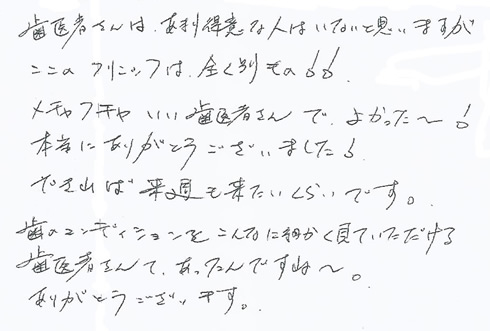 歯医者さんは、あまり得意な人はいないと思いますが
ここのクリニックは、全く別もの!!
メチャクチャいい歯医者さんで、よかった〜!
本当にありがとうございました!
できれば来週も来たいくらいです。
歯のコンディションをこんなに細かく見ていただける
歯医者さんて、あったんですね〜。
ありがとうございます。